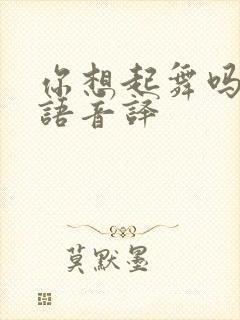 你想起舞吗
語音译
莫默墨